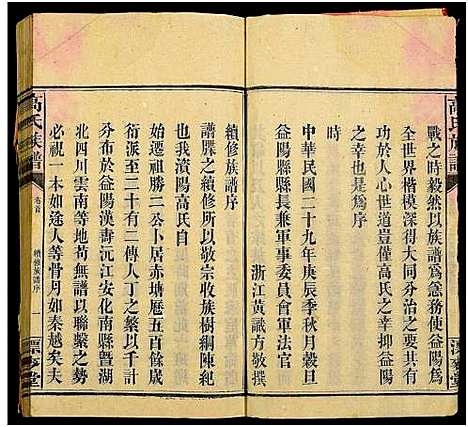 高氏族譜
戰之時毅然以族譜為急務使益陽為
全世界楷模深得大同分治之主旨則
功於人心世道豈僅高氏之幸抑益陽
之幸也是為序
時
中華民國二十九年庚辰季秋月穀旦
益陽縣縣長兼軍事委員會軍法官
浙江黃諴方敬撰
續修族譜序
譜牒之續修所以敬宗收族樹綱陳紀
也自我資陽高氏自
始遷祖勝二公卜居赤塘歷五百餘歲
衍派至二十有二傳人丁之繁以千計
分布於益陽漢壽沅江安化南縣暨湖
北四川雲南等地苟無譜以聯繫之義
必視一本如途人等骨月如秦越矣夫
高氏族譜
卷首
續修族譜序
一
漂麥堂